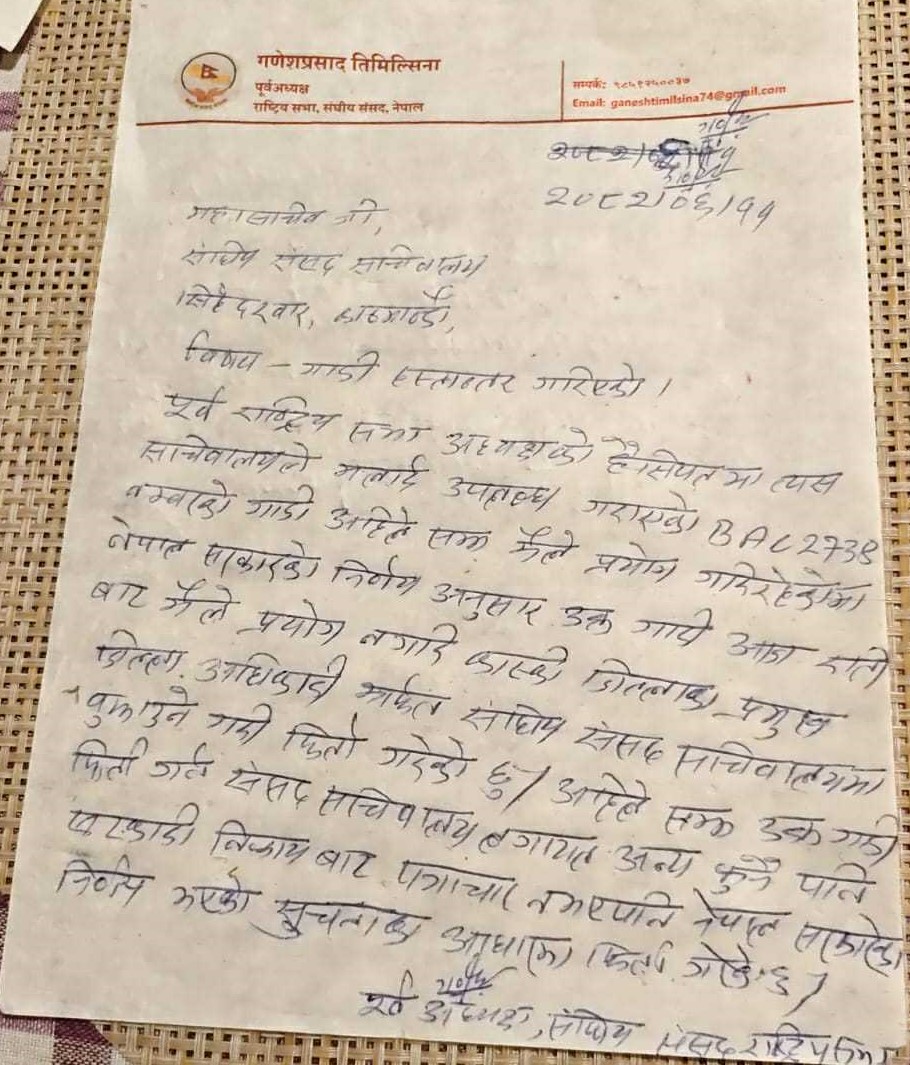 गणेशप्रसाद तिमिल्सिना
पूर्वअध्यक्ष
राष्ट्रिय सभा, संघीय संसद, नेपाल
सम्पर्क: ९८५१२५००३७
Email: ganeshtimilsina74@gmail.com
२०८२।०६।११
महासचिव ज्यू,
संघिय संसद सचिवालय
सिंहदरवार, काठमाण्डौ,
विषय - गाडी हस्तान्तर गरिएको।
पूर्व राष्ट्रिय सभा अध्यक्षको हैसियतमा त्यस
सचिवालयले मलाई उपलब्ध गराएको BAC2738
नम्वरको गाडी अहिले सम्म मैले प्रयोग गरिरहेकोमा
नेपाल सरकारको निर्णय अनुसार उक्त गाडी आज राती
बाट मैले प्रयोग नगरि कास्की जिल्लाका प्रमुख
जिल्ला अधिकारी मार्फत संघिय संसद सचिवालयमा
वुझाउने गरी फिर्ता गरेको छु। अहिले सम्म उक्त गाडी
फिर्ता गर्न संसद सचिवालय लगायत अन्य कुनै पनि
सरकारी निकाय बाट पत्राचार नभएपनि नेपाल सरकारको
निर्णय भएको सुचनाका आधारमा फिर्ता गरेको छु।
पूर्व अध्यक्ष, संघिय संसद राष्ट्रिय सभा